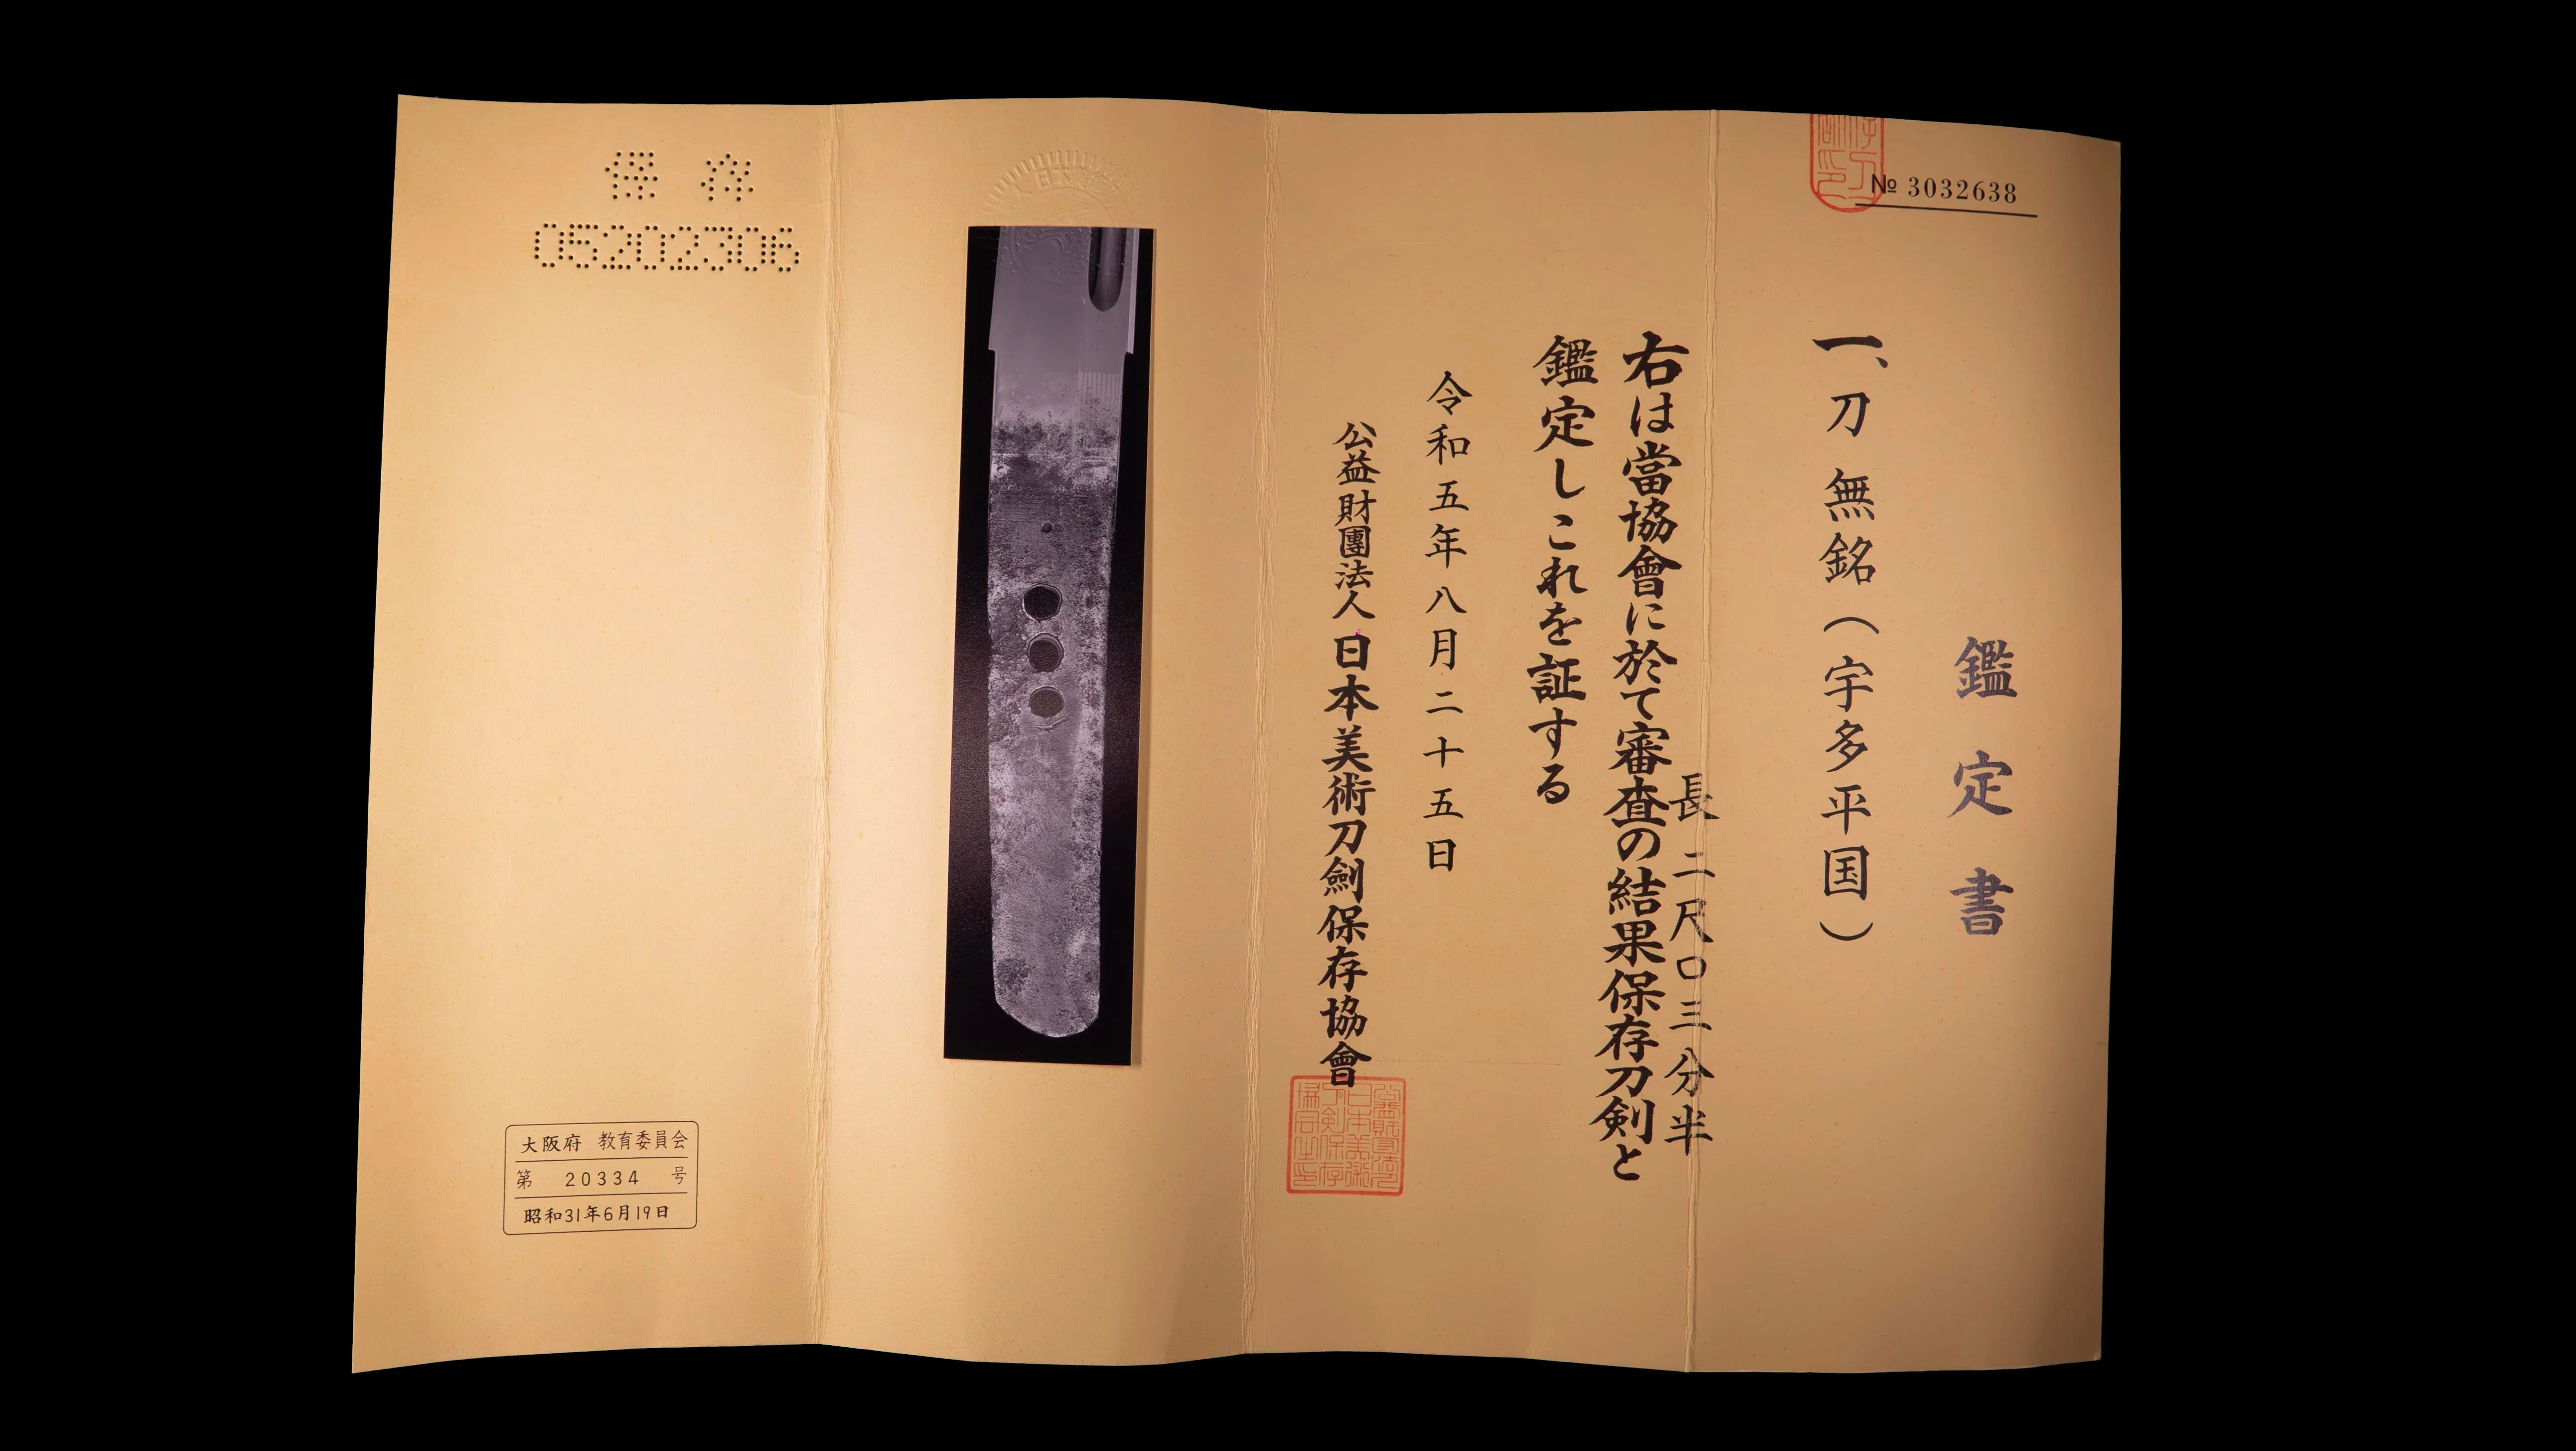 № 3032638
鑑定書
一、刀 無銘(宇多平国)
長 二尺〇三分半
右は當協會に於て審査の結果保存刀剣と
鑑定しこれを証する
令和五年八月二十五日
公益財團法人日本美術刀劍保存協會
保存
05202306
大阪府 教育委員会
第 20334 号
昭和31年6月19日